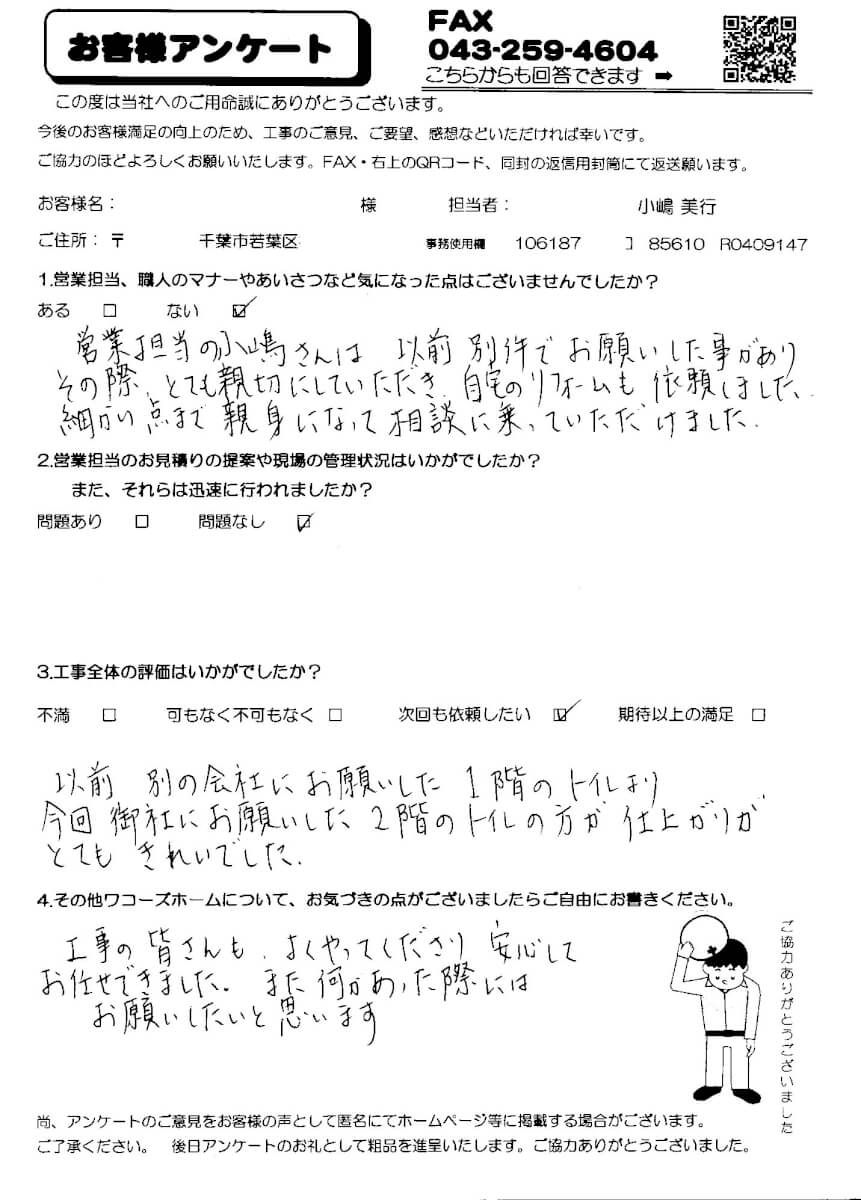 お客様アンケート
FAX
043-259-4604
こちらからも回答できます ➡
この度は当社へのご用命誠にありがとうございます。
今後のお客様満足の向上のため、工事のご意見、ご要望、感想などいただければ幸いです。
ご協力のほどよろしくお願いいたします。FAX・右上のQRコード、同封の返信用封筒にて返送願います。
お客様名： 様 担当者： 小嶋 美行
ご住所：〒 千葉市若葉区 事務使用欄 106187 85610 R0409147
1.営業担当、職人のマナーやあいさつなど気になった点はございませんでしたか？
ある □ ない ☑
営業担当の小嶋さんは 以前 別件で お願いした事があり
その際、とても親切にしていただき、自宅のリフォームも 依頼しました、
細かい点まで 親身になって 相談に乗っていただけました.
2.営業担当のお見積りの提案や現場の管理状況はいかがでしたか？
また、それらは迅速に行われましたか？
問題あり □ 問題なし ☑
3.工事全体の評価はいかがでしたか？
不満 □ 可もなく不可もなく □ 次回も依頼したい ☑ 期待以上の満足 □
以前 別の会社に お願いした 1階の トイレより
今回 御社にお願いした 2階のトイレの方が 仕上がりが
とても きれいでした.
4.その他ワコーズホームについて、お気づきの点がございましたらご自由にお書きください。
工事の 皆さんも、よくやってくださり 安心して
お任せできました。また 何かあった際には
お願いしたいと 思います
ご協力ありがとうございました
尚、アンケートのご意見をお客様の声として匿名にてホームページ等に掲載する場合がございます。
ご了承ください。 後日アンケートのお礼として粗品を進呈いたします。ご協力ありがとうございました。